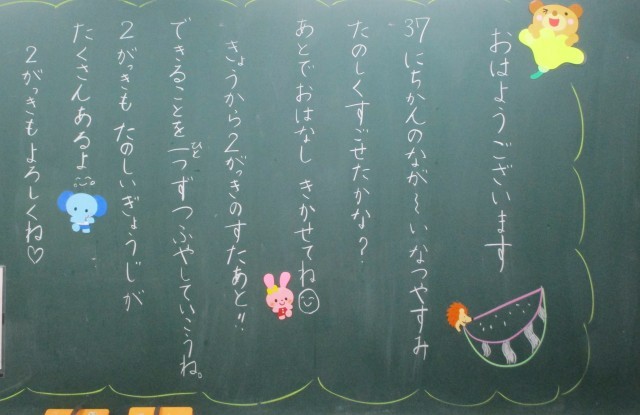 おはようございます
37にちかんのなが〜いなつやすみ
たのしくすごせたかな？
あとでおはなし きかせてね☺
きょうから2がっきのすたあと!!
できることを一つずつふやしていこうね。
ひと
2がっきも たのしいぎょうじが
たくさんあるよ
2がっきもよろしくね♡